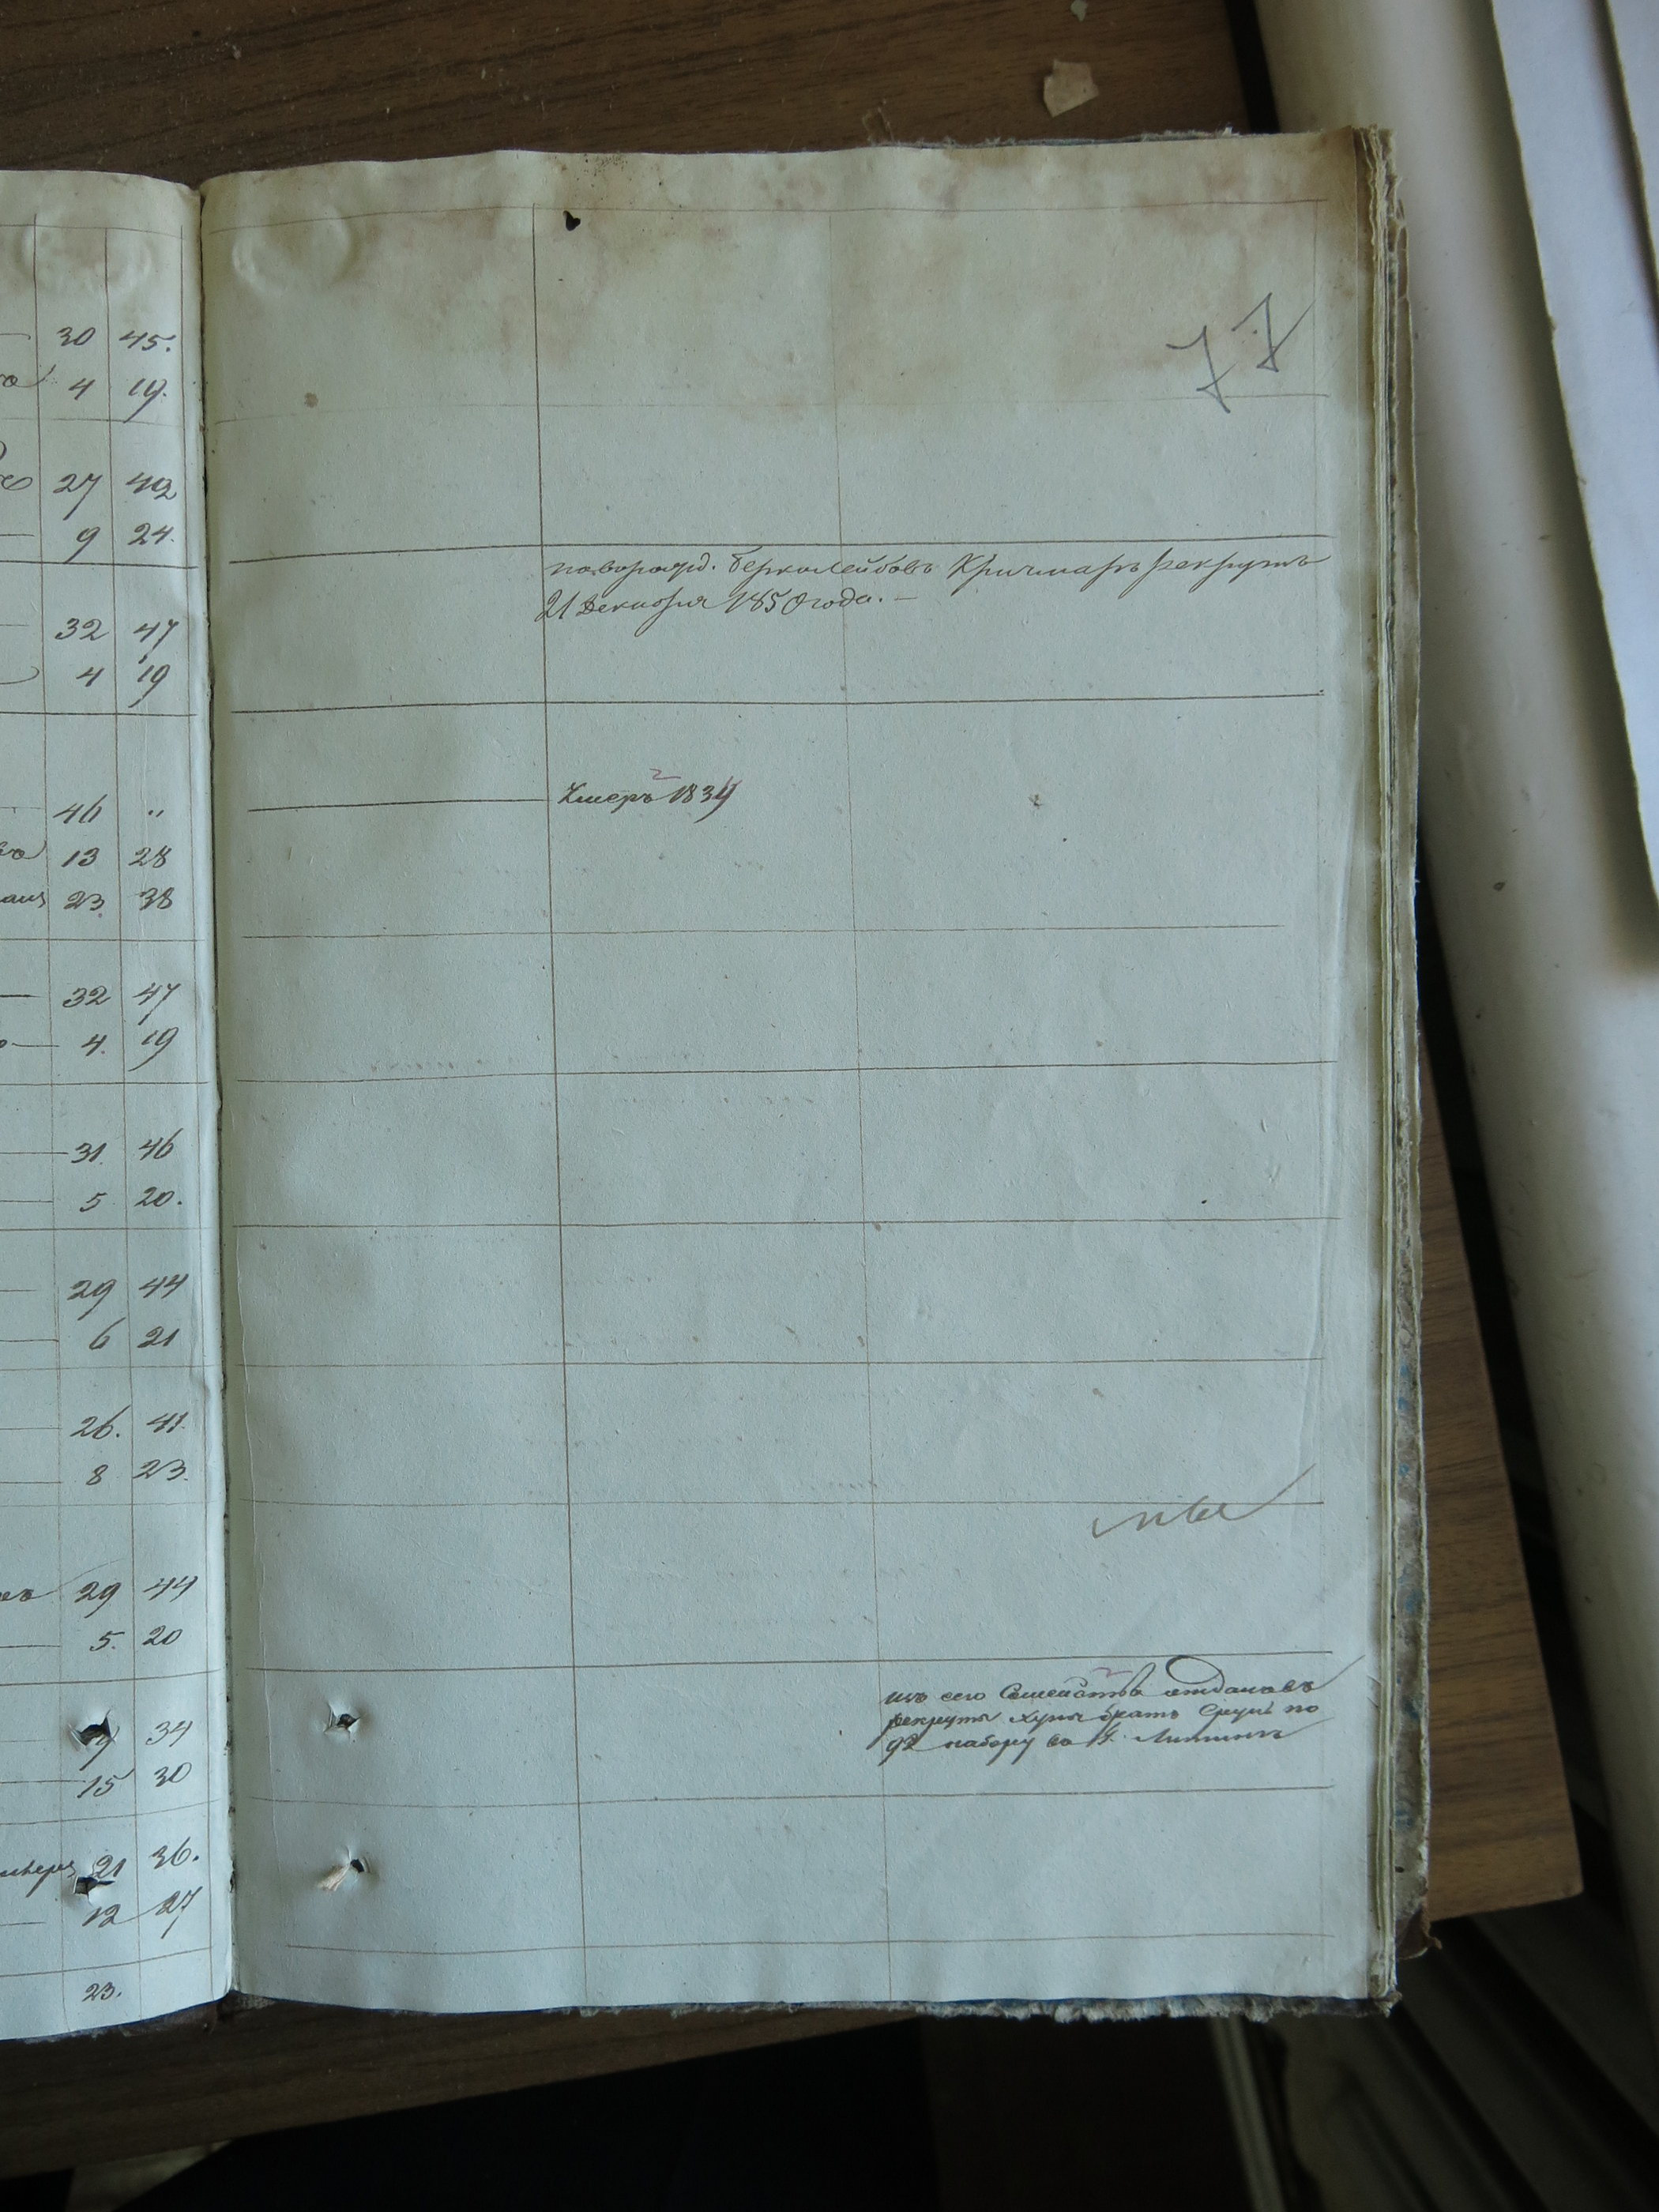 30 45.
4 19.
27 42
9 24.
32 47
4 19
46 "
13 28
23. 38
32 47
4. 19
31. 46
5 20.
29 44
6 21
26. 41.
8 23.
29 44
5. 20
34
15 30
21 36.
12 27
23.
77
Берколейбовъ Кричмаръ рекрутъ
21 Декабря 1850 года. —
Умеръ 1834
изъ сего Семейства отданъ въ
рекруты братъ по
92 набору въ г. Литинъ